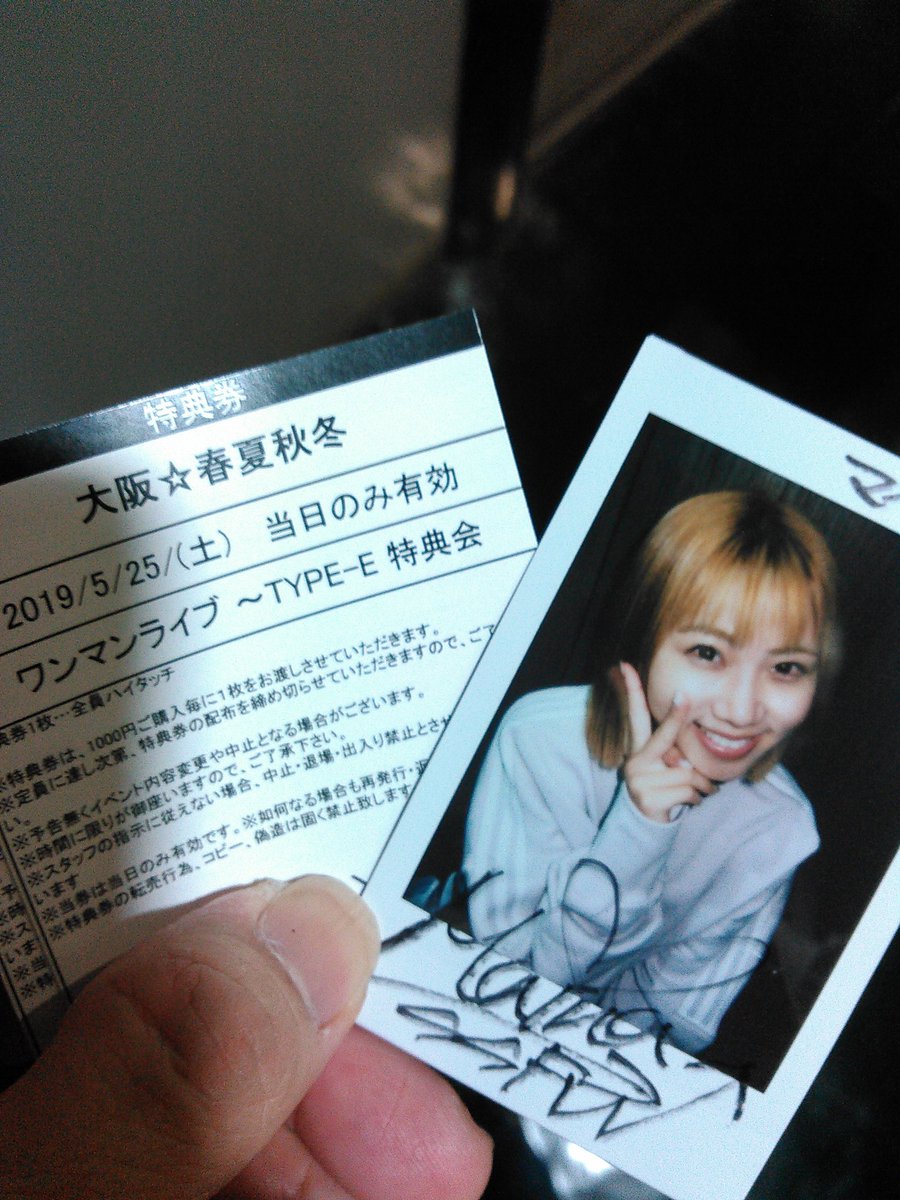 特典券
大阪☆春夏秋冬
2019/5/25/(土) 当日のみ有効
ワンマンライブ ～TYPE-E 特典会
典券1枚…全員ハイタッチ
※特典券は、1000円ご購入毎に1枚をお渡しさせていただきます。
※定員に達し次第、特典券の配布を締め切らせていただきますので、ご了
い。
※予告無くイベント内容変更や中止となる場合がございます。
※時間に限りが御座いますので、ご了承下さい。
※スタッフの指示に従えない場合、中止・退場・出入り禁止とさせ
います
※当券は当日のみ有効です。※如何なる場合も再発行・返
※特典券の転売行為、コピー、偽造は固く禁止致します